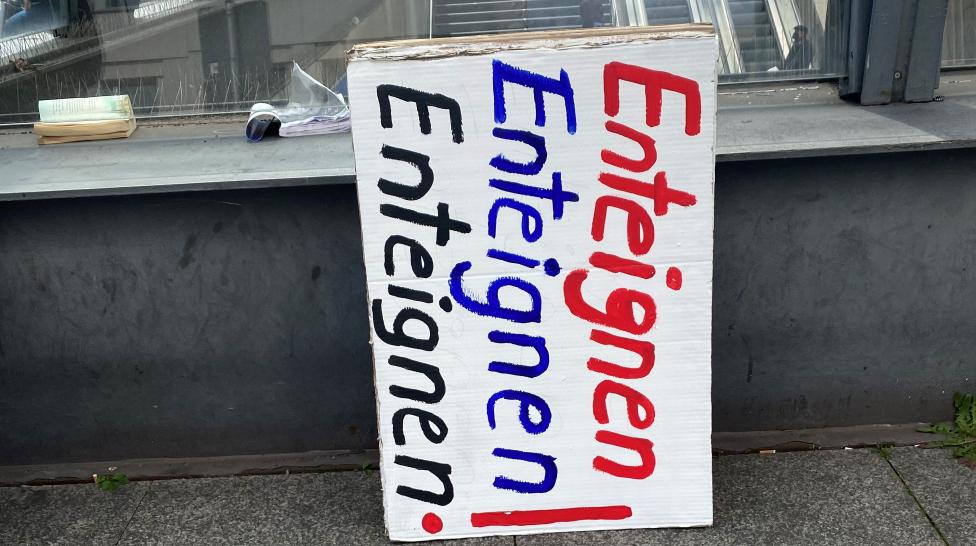 Enteignen
Enteignen
Enteignen!